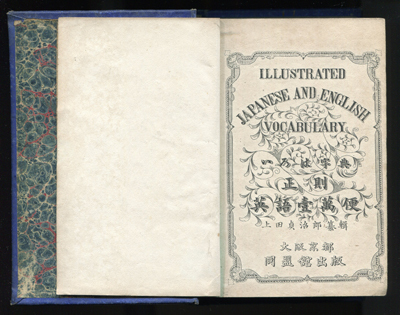 ILLUSTRATED
JAPANESE AND ENGLISH
VOCABULARY
正則
英語壹萬便
上田貞治郎纂輯
大阪京都
同盟舘出版